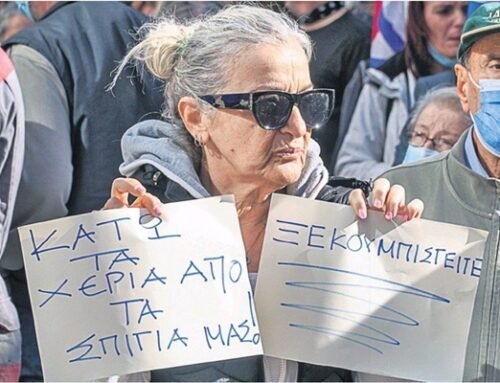 ΚΑΤΩ
ΤΑ
ΧΕΡΙΑ ΑΠΟ
ΤΑ
ΣΠΙΤΙΑ ΜΑΣ!
ΞΕΚΟΥΜΠΙΣΤΕΙΤΕ